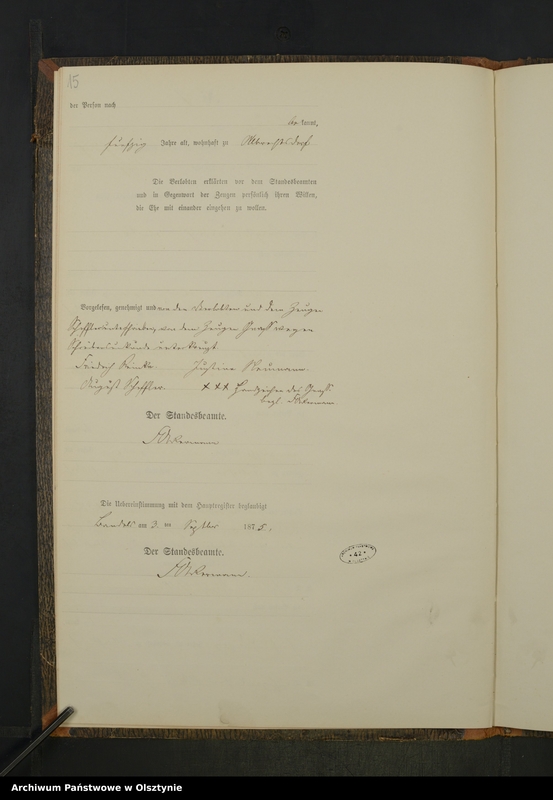 15
der Person nach
bekannt,
fünfzig Jahre alt, wohnhaft zu Albrechtsdorf
Die Verlobten erklärten vor dem Standesbeamten
und in Gegenwart der Zeugen persönlich ihren Willen,
die Ehe mit einander eingehen zu wollen.
Vorgelesen, genehmigt und von den Verlobten und dem Zeugen
Scheffler unterschrieben, von dem Zeugen wegen
Schreibensunkunde unterkreuzt
Friedrich Justine Neumann
August Scheffler. +++ Handzeichen des
begl. FAckermann.
Der Standesbeamte.
FAckermann
Die Uebereinstimmung mit dem Hauptregister beglaubigt
am 3. ten September 1875.
Der Standesbeamte.
FAckermann.
* 42 *
Archiwum Państwowe w Olsztynie